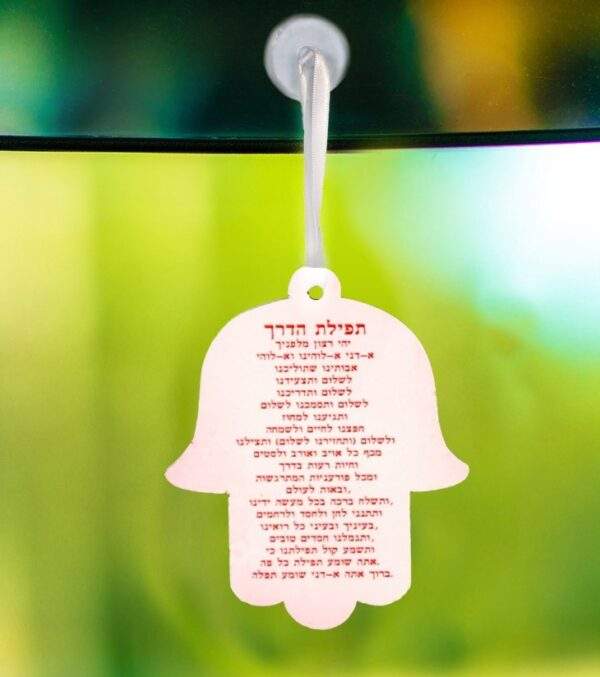 תפילת הדרך
יהי רצון מלפניך
א–דני א–לוהינו וא–לוהי
אבותינו שתוליכנו
לשלום ותצעידנו
לשלום ותדריכנו
לשלום ותסמכנו לשלום
ותגיענו למחוז
חפצנו לחיים ולשמחה
ולשלום (ותחזירנו לשלום) ותצילנו
מכף כל אויב ואורב ולסטים
וחיות רעות בדרך
ומכל פורעניות המתרגשות
ובאות לעולם,
ותשלח ברכה בכל מעשה ידינו,
ותתננו לחן ולחסד ולרחמים
בעיניך ובעיני כל רואינו,
ותגמלנו חסדים טובים,
ותשמע קול תפילתנו כי
אתה שומע תפילת כל פה.
ברוך אתה א–דני שומע תפלה.